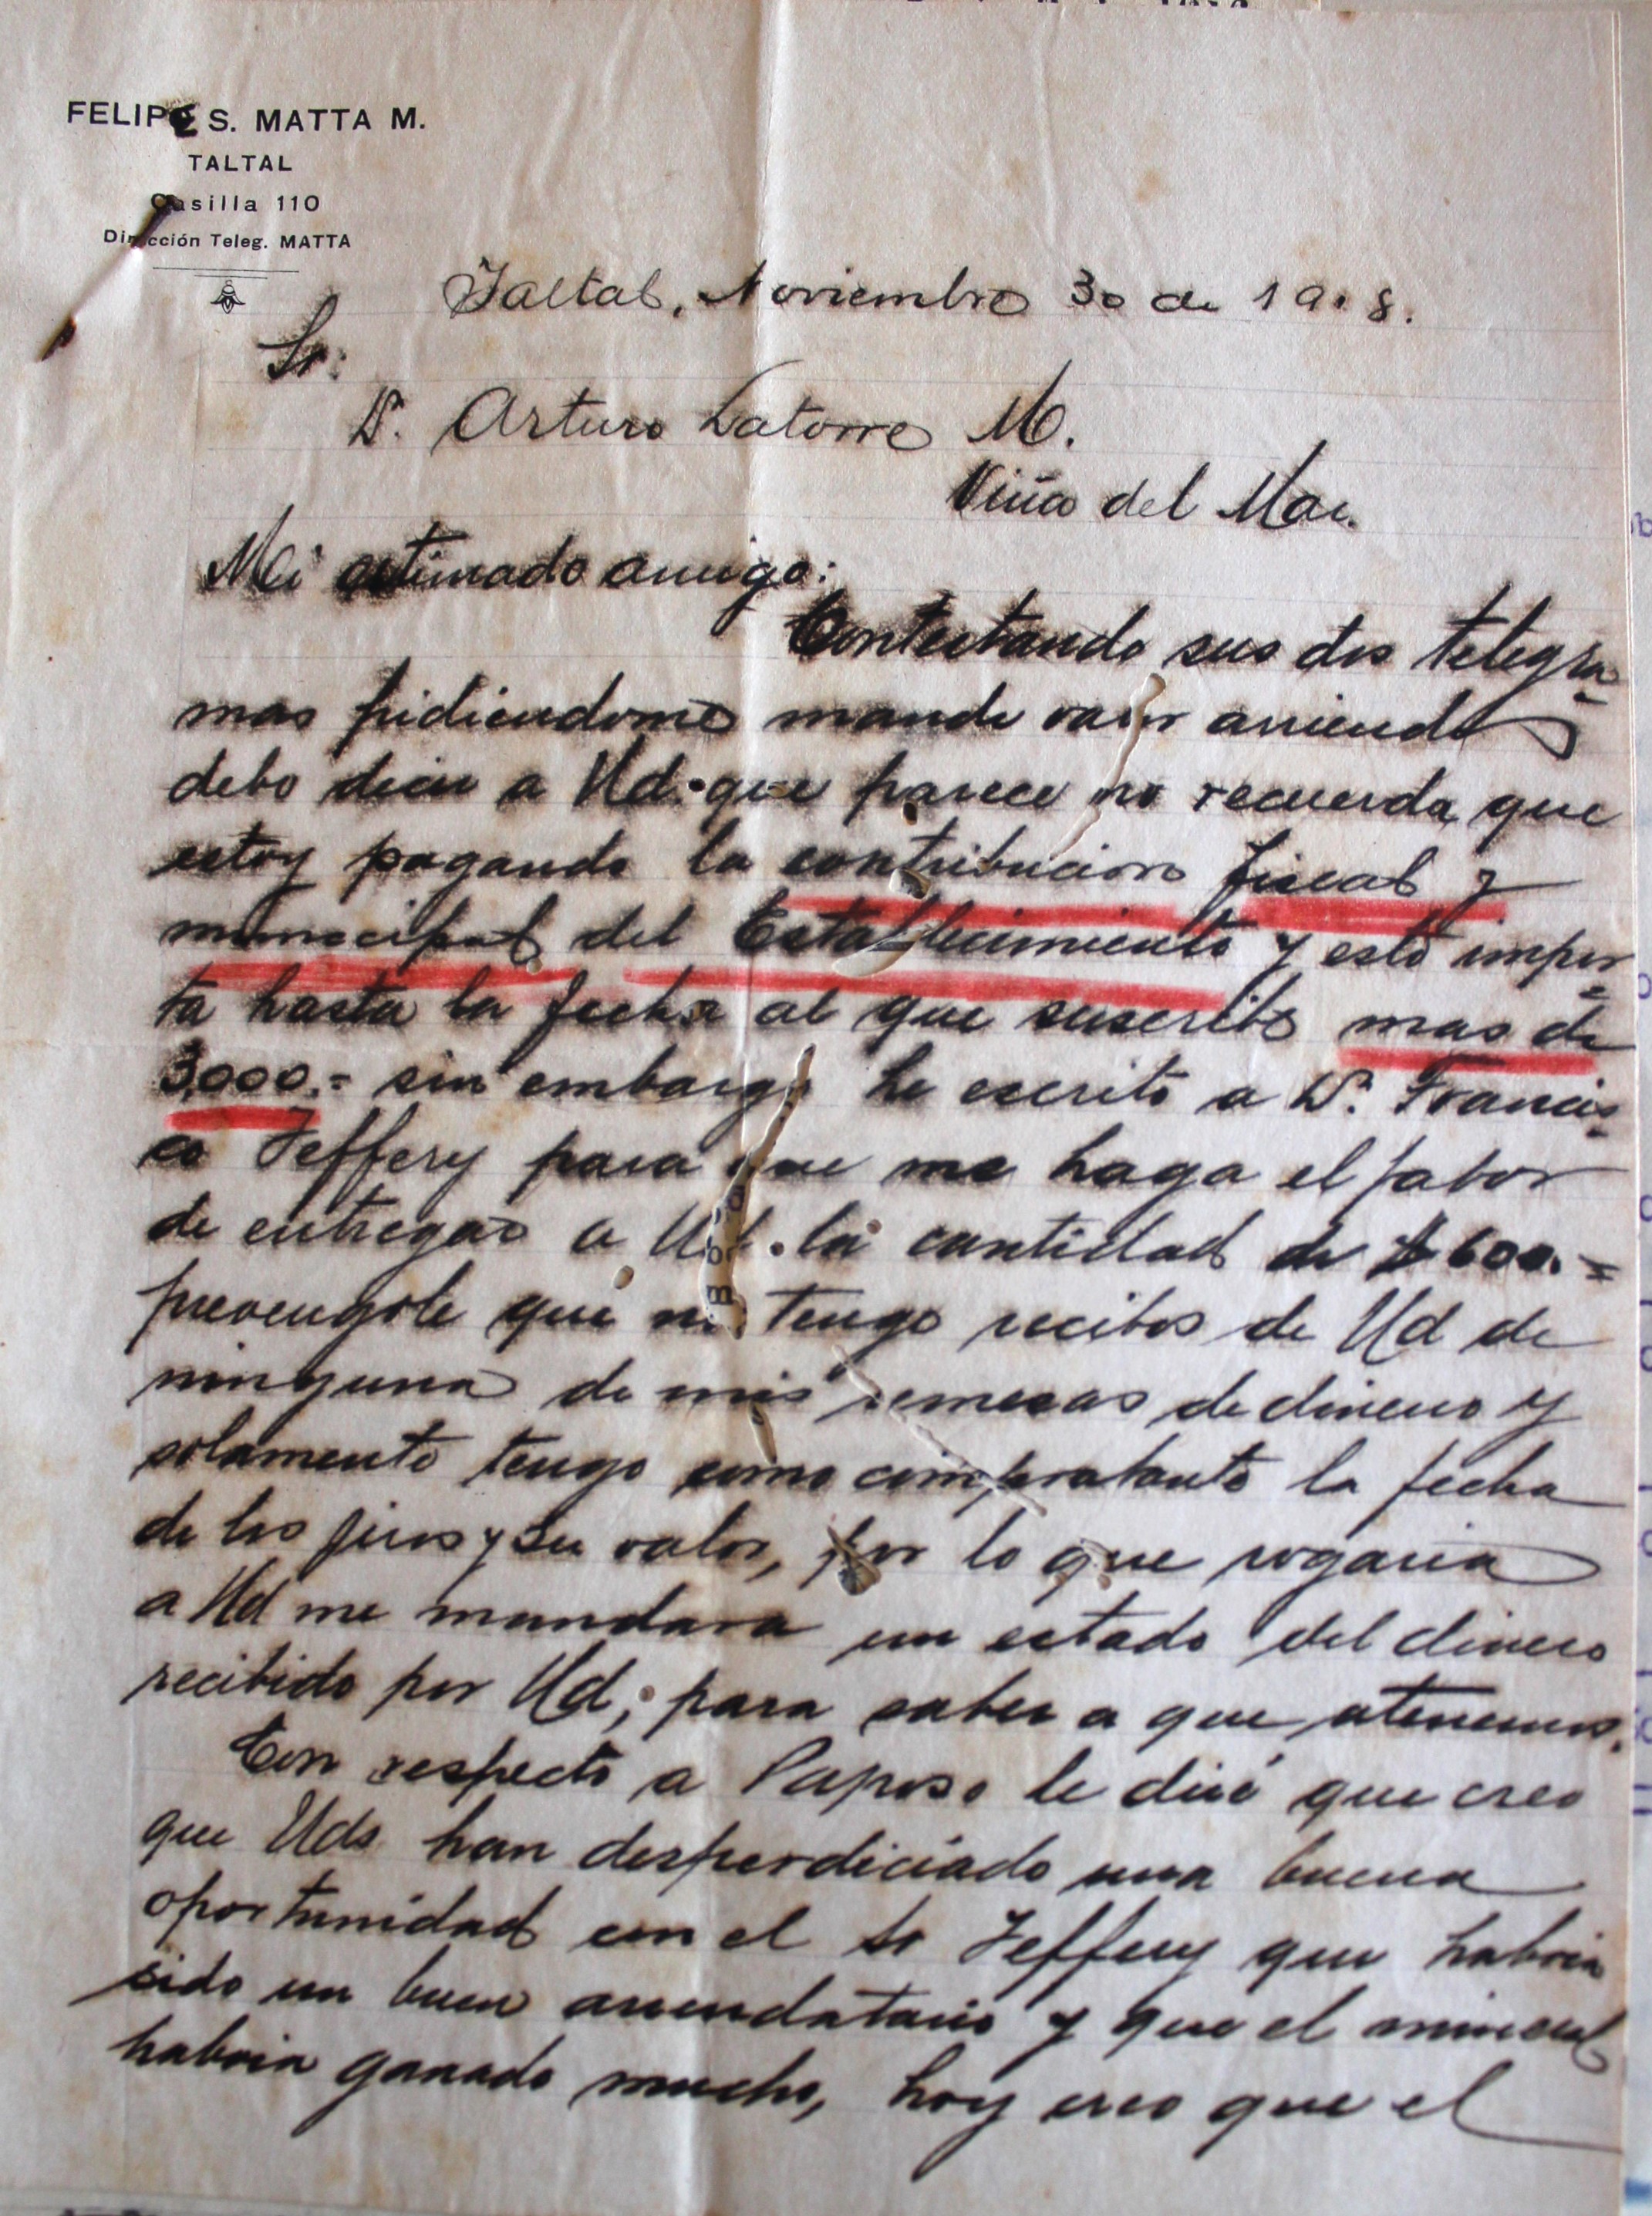 FELIPE S. MATTA M.
TALTAL
Casilla 110
Dirección Teleg. MATTA
Taltal, Noviembre 30 de 1908.
Sr:
D. Arturo Latorre M.
Viña del Mar.
Mi estimado amigo:
Contestando sus dos telegra-
mas pidiendome mande valor arriendo
debo decir a Ud. que parece no recuerda que
estoy pagando la contribucion fiscal y
municipal del Establecimiento y esto impor-
ta hasta la fecha al que suscribe mas de
3,000.= sin embargo he escrito a D. Francis-
co Jeffery para que me haga el fabor
de entregar a Ud. la cantidad de $ 600.=
prevengole que no tengo recibos de Ud de
ninguna de mis remesas de dinero y
solamente tengo como comprobante la fecha
de los jiros y su valor, por lo que rogaria
a Ud me mandara un estado del dinero
recibido por Ud, para saber a que atenernos.
Con respecto a Paposo le diré que creo
que Uds han desperdiciado una buena
oportunidad con el Sr Jeffery que habria
sido un buen arrendatario y que el mineral
habria ganado mucho, hoy creo que el